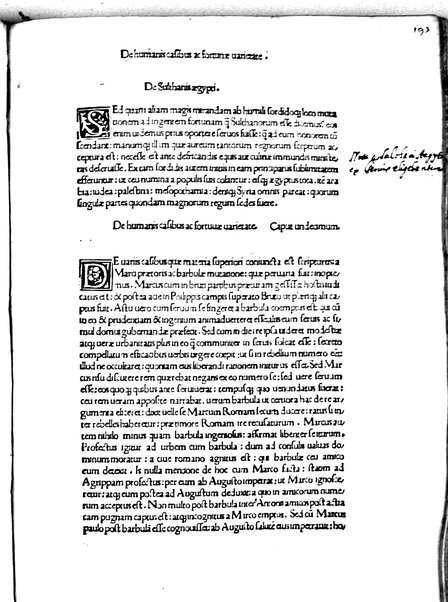 193
De humanis casibus ac fortunæ uarietate.
De Sulthanis ægypti.
SEd quam aliam magis mirandam ab humili sordidoq; loco muta
tionem ad ingentem fortunam q̃ Sulthanorum esse ducemus. eos
enim uidemus prius oportere seruos fuisse: q̃ ad eum honorem cõ
scendant: manumq; illam quæ auream tantorum regnorum sceptrum ac,
ceptura est: necesse est ante defricandis equis aut culinæ immundis ministe,
riis deseruisse. Ex tam sordidis autem initiis in eam principatus sublimitatem
efferuntur: ut ceu numina a populis suis colantur: eisq; ægyptus tota. itē ara
bia: iudea: palestina: mesopothamia: deniq; Syria omnis pareat: quorum
singulæ partes quondam magnorum regum sedes fuere.
De humanis casibus ac fortunæ uarietate. Caput undecimum.
DE uariis casibus quæ materia superiori coniuncta est scripturus: a
Marci prætoris ac barbulæ mutatione: quæ peruaria fuit: inope,
mus. Marcum cum bruti partibus præerat gessisse hostis iudi
catus est: & postea acie in Philippis campis superato Bruto ut pleriq; alii ca,
ptus fuit. Astu uero cum seruum se fingeret a barbula coemptus est. qui cũ
in eo & prudentiam & ingenium animaduerteret essetalis eum seruis ac fa,
mul domui gubernandæ præfecit. Sed cum in dies re ipsa uideret modestiæ
atq; ueræ urbanitatis plus in eo q̃ communiter in seruis soleat esse: secreto
compellatum efficacibus uerbis urgere coepit: ut si in rebellium numero eēt:
illud ne occultaret: quoniam eius liberandi rationem initurus esset. Sed Mar
cus risu discutere rem quærebat negans ex eo numero se: sed uere seruum
esse: eosq; quibus ante seruiuerat: tempusq; quo uenundatus fuerat:
ceu rem ueram apposite narrabat. uerum barbula ut certiora hac de re ar,
gumenta eliceret: docet uelle se Marcum Romam secum ducere: ratus si in
ter rebelles haberetur: præ timore Romam ire recusaturum. Marcus au
tem nihilo minus quam barbula ingeniosus: affirmat libenter se iturum.
Profectus igitur ad urbem cum barbula: dum ad consulis ualuas do,
minum moratur: a ciue romano agnitus est: qui barbulæ ceu amico
eum detexit. Is nulla mentione de hoc cum Marco facta: statim ad
Agrippam profectus: per eum ab Augusto impetrat: ut Marco ignosce,
retur: atq; eum postea ad Augustum deduxit: a quo in amicorum nume,
rum acceptus est. Non multo post barbula inter Antonii amicos post actia
cam pugnam captus est: atq; incognitus a Marco emptus. Sed cũ Marcus
paulo post barbulã esse cognouisset: ab Augusto salutē eius impetrat: ho,